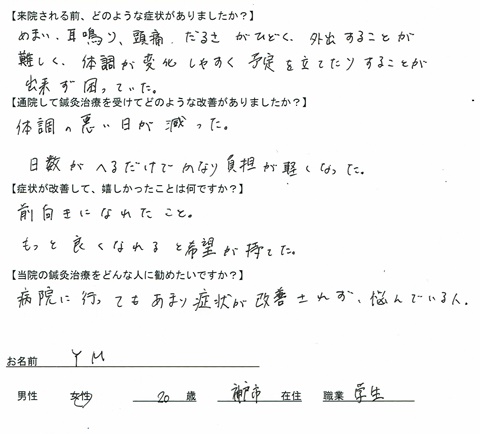 【来院される前、どのような症状がありましたか？】
めまい、耳鳴り、頭痛、だるさ がひどく、外出することが
難しく、体調が変化しやすく 予定を立てたりすることが
出来ず困っていた。
【通院して鍼灸治療を受けてどのような改善がありましたか？】
体調の悪い日が減った。
日数がへるだけでかなり負担が軽くなった。
【症状が改善して、嬉しかったことは何ですか？】
前向きになれたこと。
もっと良くなれると希望が持てた。
【当院の鍼灸治療をどんな人に勧めたいですか？】
病院に行ってもあまり症状が改善されず、悩んでいる人.
お名前 YM
男性 女性 20 歳 神戸市 在住 職業 学生